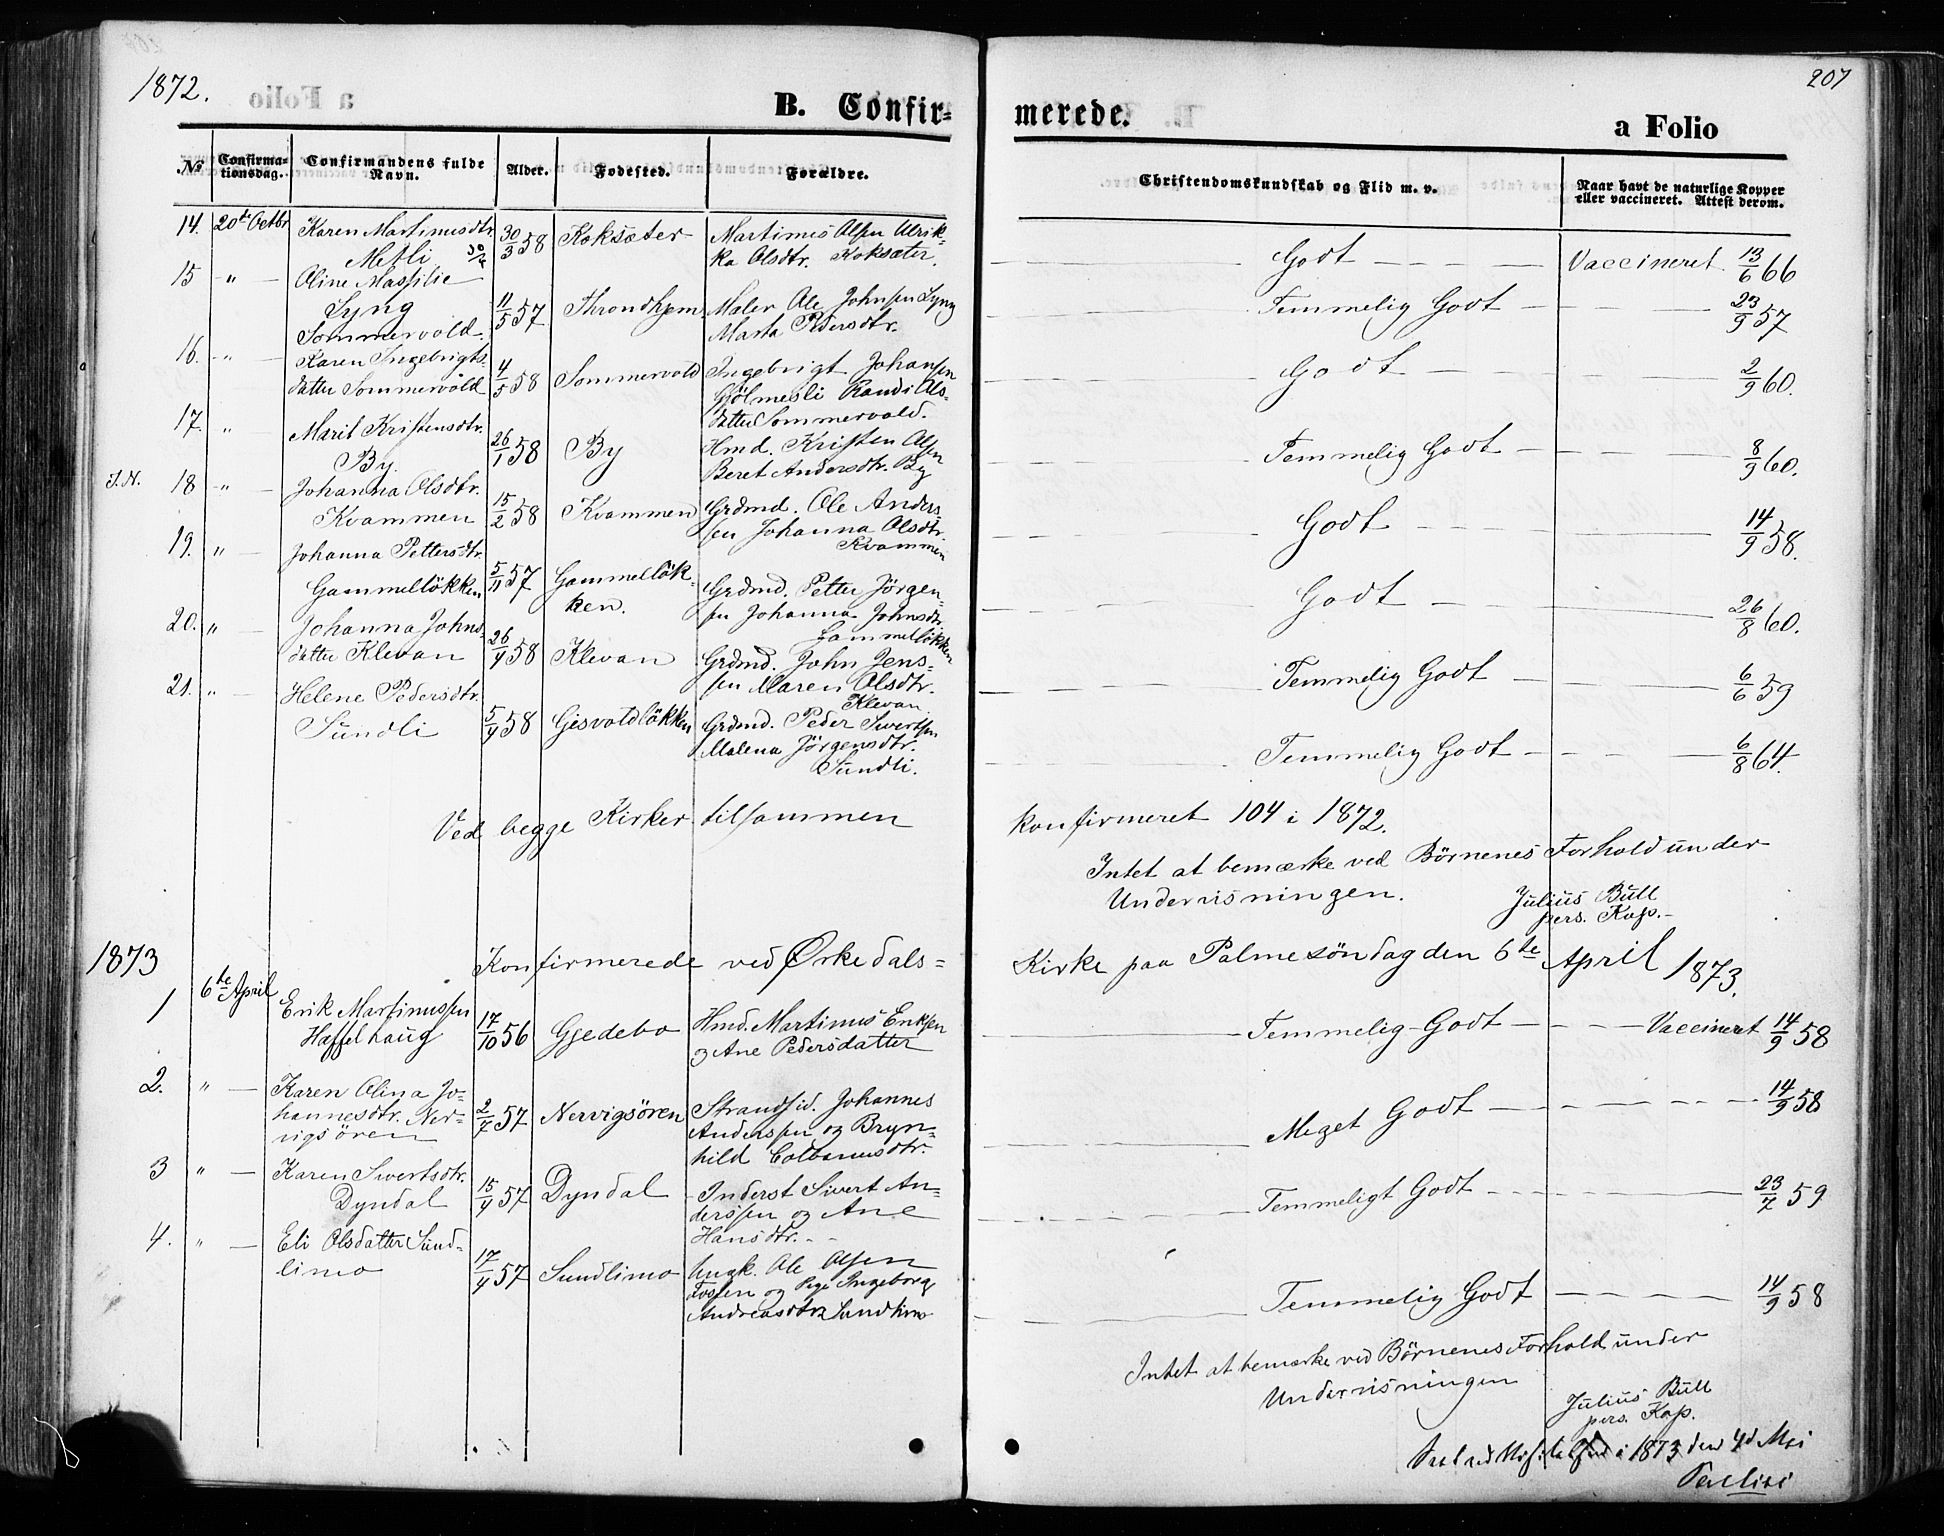 1872.
207
B. Confir-
merede.
a Folio
No
Confirma-
tionsdag.
Confirmandens fulde
Navn.
Alder.
Fødested.
Forældre.
Christendomskundskab og Flid m. v.
Naar havt de naturlige Kopper
eller vaccineret. Attest derom.
14. 20de Octbr Karen Martinusdtr 30/3 58 Koksæter Martinus Olsen Ulrik-
Metli 30/4 ka Olsdtr. Koksæter.
Godt Vaccineret 13/6 66
15 " Oline Massilie
Lyng 11/5 57 Throndhjem Maler Ole Johnsen Lyng
Sommervold Marta Pedersdtr.
Temmelig Godt 23/9 57
16. " Karen Ingebrigts-
datter Sommervold 4/5 58 Sommervold Ingebrigt Johansen
Gjölmesli Randi Ols-
datter Sommervold.
Godt 2/9 60.
17. " Marit Kristensdtr.
By. 26/1 58 By Hmd. Kristen Olsen
Beret Andersdtr. By
Temmelig Godt 8/9 60.
S.N. 18 " Johanna Olsdtr.
Kvammen 15/2 58 Kvammen Grdmd. Ole Anders-
sen Johanna Olsdtr.
Kvammen
Godt 14/9 58.
19. " Johanna Pettersdtr.
Gammellökken 5/11 57 Gammellök-
ken. Grdmd. Petter Jörgen-
sen Johanna Johnsdtr.
Gammellökken
Godt 26/8 60.
20. " Johanna Johns-
datter Klevan 26/4 58 Klevan Grdmd. John Jens-
sen Maren Olsdtr.
Klevan
Temmelig Godt 6/6 59
21. " Helene Pedersdtr.
Sundli 5/4 58 Gisvoldlökken Grdmd. Peder Sivertsen
Malena Jörgensdtr.
Sundli.
Temmelig Godt 6/8 64.
Ved begge Kirker tilsammen konfirmeret 104 i 1872.
Intet at bemærke ved Börnenes Forhold under
Undervisningen.
Julius Bull
pers. Kap.
1873 Konfirmerede ved Ørkedals-
Kirke paa Palmesöndag den 6te April 1873.
1 6te April Erik Martinussen
Hoffelhaug 17/10 56 Gjedebo Hmd. Martinus Eriksen
og Ane Pedersdatter
Temmelig Godt Vaccineret 14/9 58
2. " Karen Olina Jo-
hannesdtr. Ner-
vigsören 2/7 57 Nervigsören Strandsid. Johannes
Anderssen og Bryn-
hild Colbanusdtr.
Meget Godt 14/9 58
3 " Karen Sivertsdtr.
Dyndal 15/4 57 Dyndal Inderst Sivert An-
derssen og Ane
Hansdtr.
Temmeligt Godt 23/7 59
4. " Eli Olsdatter Sund-
limo 17/4 57 Sundlimo Ungk. Ole Olsen
og Pige Ingeborg
Andreasdtr. Sundlimo
Temmelig Godt 14/9 58
Intet at bemærke ved Börnenes Forhold under
Undervisningen
Julius Bull
pers. Kap.
i 1873 den 4d Mai